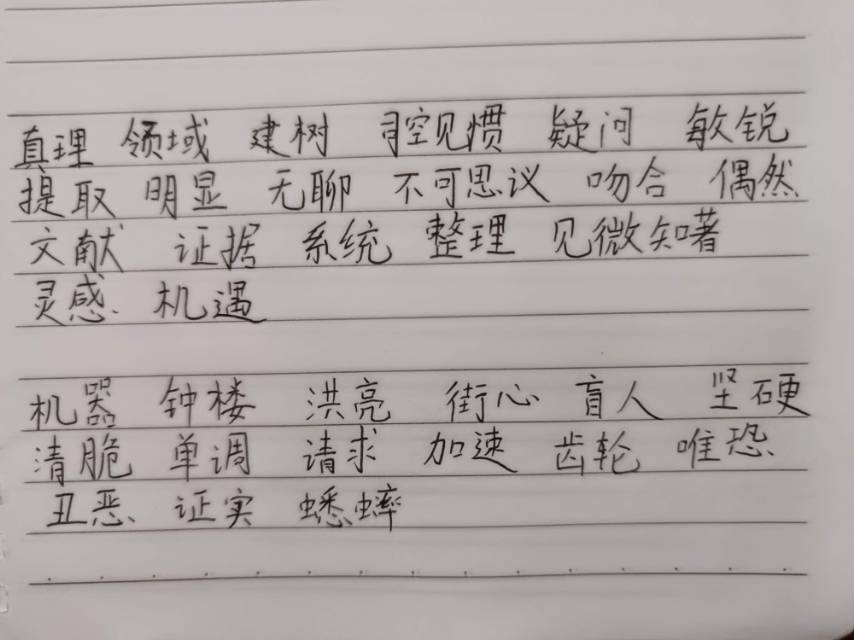 真理 领域 建树 司空见惯 疑问 敏锐
提取 明显 无聊 不可思议 吻合 偶然
文献 证据 系统 整理 见微知著
灵感 机遇
机器 钟楼 洪亮 街心 盲人 坚硬
清脆 单调 请求 加速 齿轮 唯恐
丑恶 证实 蟋蟀